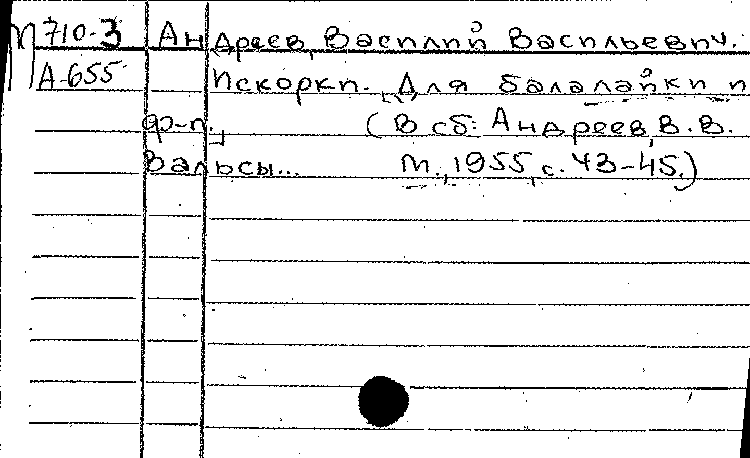 М 710-3 Андреев, Василий Васильевич.
А-655 Искорки. [Для балалайки и
ф-п.] (В сб: Андреев, В.В.
Вальсы... М., 1955, с. 43-45.)